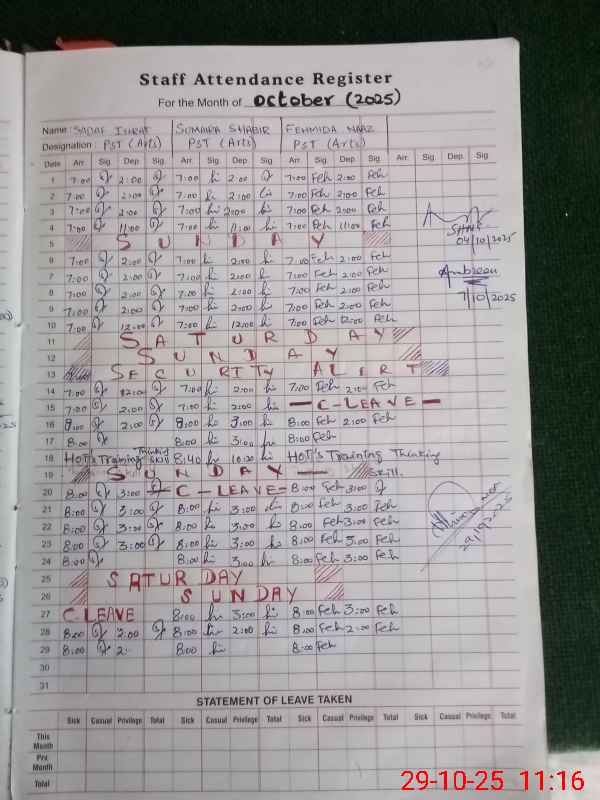 Staff Attendance Register
For the Month of October (2025)
Name: SADAF ISHRAT SUMAIRA SHABIR FEHMIDA NAAZ
Designation: PST (Arts) PST (Arts) PST (Arts)
Date Arr. Sig. Dep. Sig. Arr. Sig. Dep. Sig. Arr. Sig. Dep. Sig. Arr. Sig. Dep. Sig.
1 7:00 2:00 7:00 hi 2:00 7:00 Feh 2:00 Feh
2 7:00 2:00 7:00 hi 2:00 hi 7:00 Feh 2:00 Feh
3 7:00 2:00 7:00 hi 2:00 hi 7:00 Feh 2:00 Feh
4 7:00 11:00 7:00 hi 11:00 hi 7:00 Feh 11:00 Feh
04/10/2025
5 SUNDAY
6 7:00 2:00 7:00 hi 2:00 hi 7:00 Feh 2:00 Feh
7 7:00 2:00 7:00 hi 2:00 hi 7:00 Feh 2:00 Feh
Ambreen
7/10/2025
8 7:00 2:00 7:00 hi 2:00 hi 7:00 Feh 2:00 Feh
9 7:00 2:00 7:00 hi 2:00 hi 7:00 Feh 2:00 Feh
10 7:00 12:00 7:00 hi 12:00 hi 7:00 Feh 12:00 Feh
11 SATURDAY
12 SUNDAY
13 SECURITY ALERT
14 7:00 12:00 7:00 hi 2:00 hi 7:00 Feh 2:00 Feh
15 7:00 2:00 7:00 hi 2:00 hi - C-LEAVE -
16 2:00 8:00 3:00 hi 8:00 Feh 2:00 Feh
17 8:00 8:00 hi 3:00 8:00 Feh
18 HOT's Training Thinking Skill 8:40 10:20 hi HOT's Training Thinking
19 SUNDAY - Skill.
20 8:00 3:00 - C-LEAVE - 8:00 Feh 3:00
21 8:00 3:00 8:00 hi 3:00 hi 8:00 Feh 3:00 Feh
22 8:00 3:00 8:00 hi 3:00 hi 8:00 Feh 3:00 Feh
23 8:00 3:00 8:00 hi 3:00 hi 8:00 Feh 3:00 Feh
24 8:00 8:00 hi 3:00 hi 8:00 Feh 3:00 Feh
25 SATURDAY
26 SUNDAY
27 C.LEAVE 8:00 hi 3:00 hi 8:00 Feh 3:00 Feh
28 8:00 2:00 8:00 hi 2:00 hi 8:00 Feh 2:00 Feh
29 8:00 8:00 hi 8:00 Feh
30
31
STATEMENT OF LEAVE TAKEN
Sick Casual Privilege Total Sick Casual Privilege Total Sick Casual Privilege Total Sick Casual Privilege Total
This Month
Pre Month
Total
29-10-25 11:16